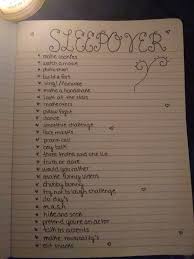 SLEEPOVER
make s'mores
watch a movie
photoshoot
build a fort
sing/karaoke
make a handshake
look at the stars
makeovers
pillow fight
dance
smoothie challenge
face masks
prank call
spy talk
two truths and one lie
truth or dare
would you rather
make funny videos
chubby bunny
try not to laugh challenge
do diy's
m.a.s.h
hide and seek
pretend you're an actor
talk in accents
make musical.ly's
eat snacks